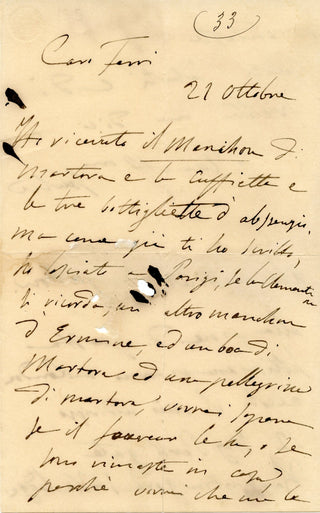 33
Caro Ferri
21 Ottobre
Ho ricevuto il Manchon di
martora e le cuffiette e
le tre bottigliette d'
ma come già ti ho scritto,
ho lasciato a Parigi, se
ti ricorda, un altro manchon
d'Ermine, ed un boa di
Martora ed una pellegrina
di martora, vorrei sapere
se il le ha, o se
sono rimaste in casa,
perchè vorrei che me le